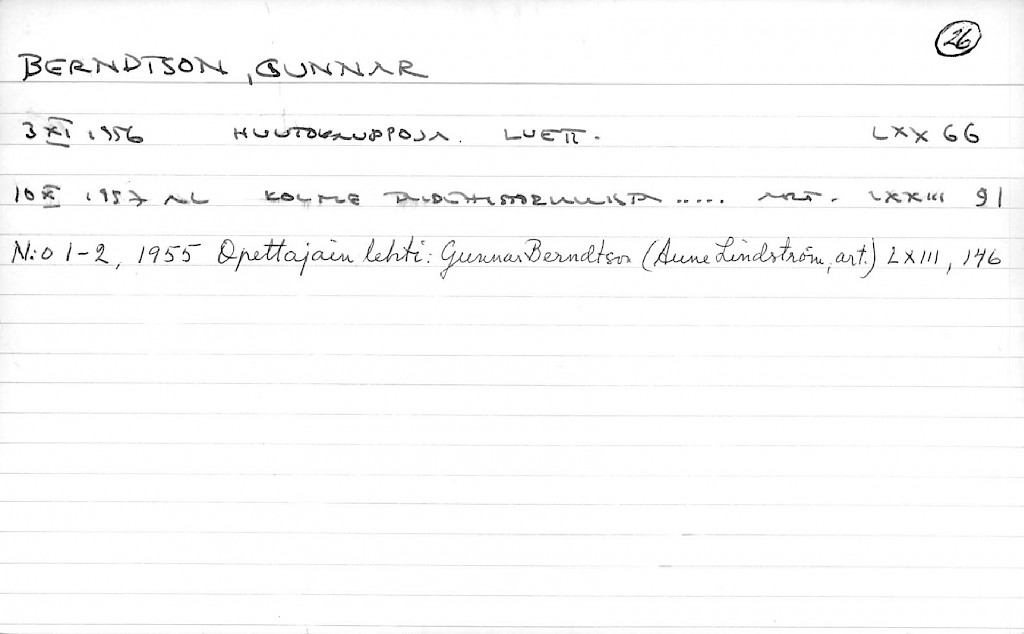 26
BERNDTSON, GUNNAR
3 XI 1956 HUUTOKAUPPOJA. LUETT. LXX 66
10 X 1957 AL KOLME TAIDEHISTORIALLISTA ..... ART. LXXIII 91
N:o 1-2, 1955 Opettajain lehti: Gunnar Berndtson (Aune Lindström, art.) LXIII, 146